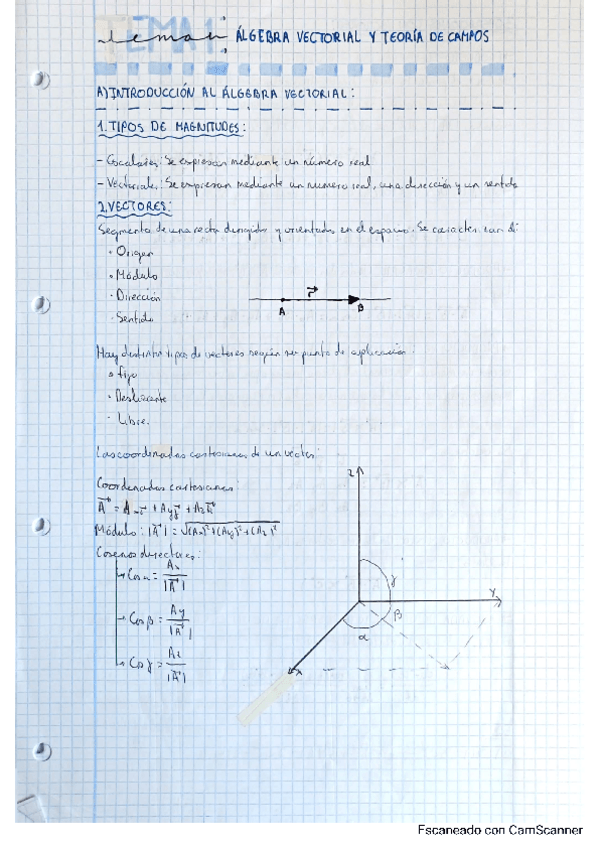 TEMA 1: ÁLGEBRA VECTORIAL Y TEORÍA DE CAMPOS
A) INTRODUCCIÓN AL ÁLGEBRA VECTORIAL:
1. TIPOS DE MAGNITUDES:
- Escalares: Se expresan mediante un número real
- Vectoriales: Se expresan mediante un numero real, una dirección y un sentido
2. VECTORES:
Segmento de una recta dirigido y orientado en el espacio. Se caracterizan
· Origen
· Módulo
· Dirección
· Sentido
r⃗
A B
Hay distintos tipos de vectores según su punto de aplicación:
· Fijo
· Deslizante
· Libre.
Las coordenadas cartesianas de un vector:
Coordenadas cartesianas:
A⃗ = Ax i⃗ + Ay j⃗ + Az k⃗
Módulo: |A⃗| = √(Ax)²+(Ay)²+(Az)²
Cosenos directores:
↳ Cos α = Ax / |A⃗|
↳ Cos β = Ay / |A⃗|
↳ Cos γ = Az / |A⃗|
Z
γ
Y
β
α
X
Escaneado con CamScanner